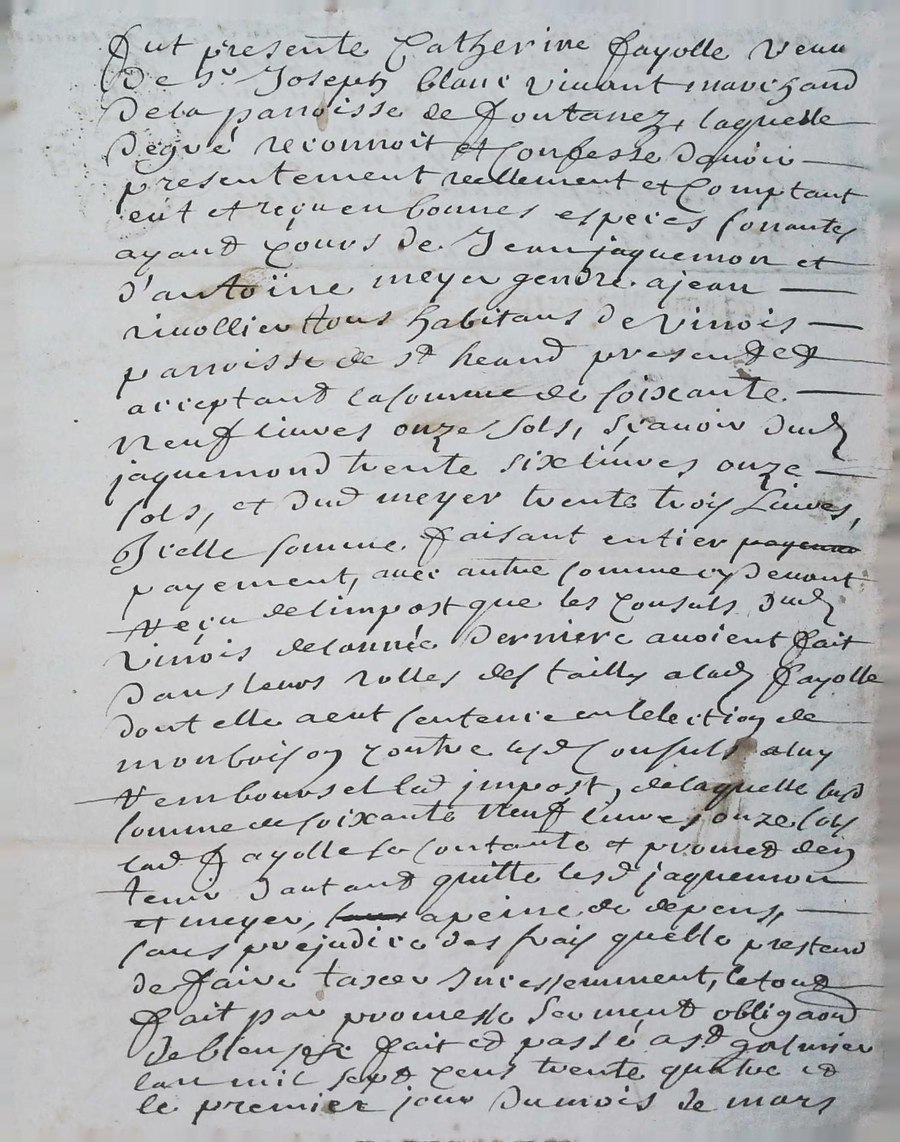 fut presente Catherine fayolle veuu
De Sr Joseph blanc vivant marchand
Dela parroisse de fontanez, laquelle
Degré reconnoit et Confesse davoir
presentement reellement et Comptant
eut et reçu en bonnes especes sonnantes
ayand Cours de Jean jaquemon et
d'antoine meyer gendre a jean
rivollier tous habitans de vinois
parroisse de st heand presented et
acceptand la somme de soixante
neuf livres onze sols, sçavoir dud
jaquemond trente six livres onze
sols, et dud meyer trente trois Livres,
Icelle somme faisant entier payemen
payement, avec autre somme cy devant
reçu de limpost que les Consuls dud
vinois delannée derniere avoient fait
dans leurs rolles des tailles a lad fayolle
dont elle a eut sentence en lelection de
monbrison contre lesd Consuls a luy
rembourser led impost, de laquelle susd
somme de soixante neuf livres onze sols
lad fayolle se contante et promed den
tenir dautand quitte lesd jaquemon
et meyer, a peine de depens,
sans prejudice des frais quelle prestend
de faire taxer Incessemment, le tout
fait par promesse serment obligaon
de biens fait et passé a st galmier
lan mil sept cens trente quatre et
le premier jour du mois de mars